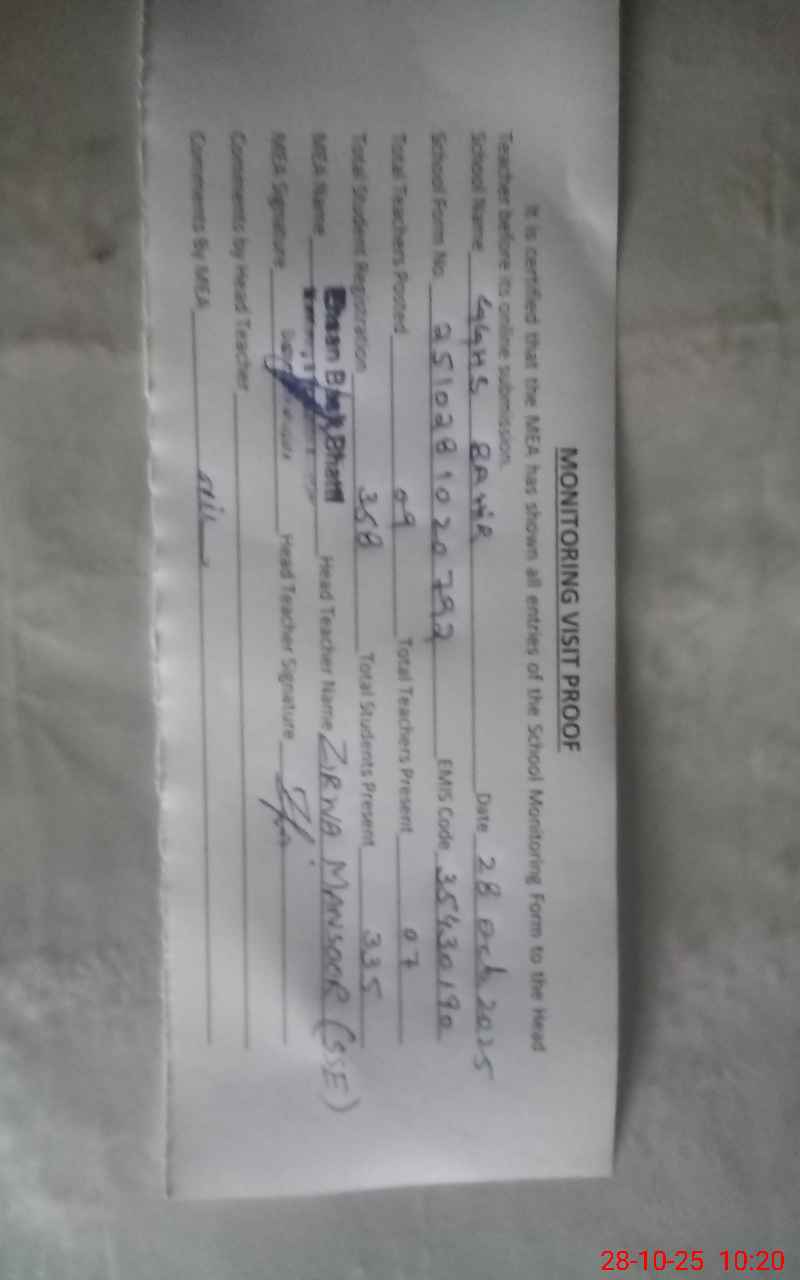 MONITORING VISIT PROOF
It is certified that the MEA has shown all entries of the School Monitoring Form to the Head
Teacher before its online submission.
School Name GGHS Date 28 Oct 2025
School Form No. 251028102 0792 EMIS Code 35430190
Total Teachers Posted 09 Total Teachers Present 07
Total Student Registration 358 Total Students Present 335
MEA Name Ehsan Bhatti Head Teacher Name ZIRWA MANSOOR (SSE)
MEA Signature Head Teacher Signature
Comments by Head Teacher
Comments By MEA nil
28-10-25 10:20